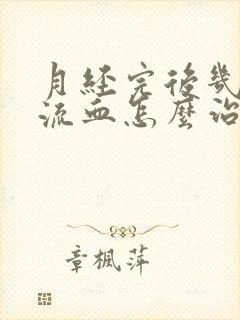 月經完後幾
流血怎麼治
章楓萍